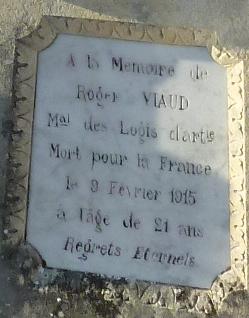 A la Mémoire de
Roger VIAUD
Mal des Logis d'artie
Mort pour la France
le 9 Février 1915
à l'âge de 21 ans
Regrets Eternels